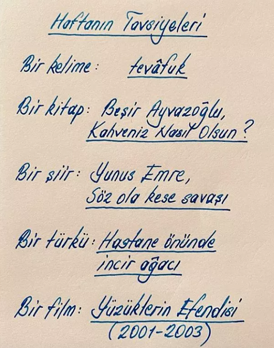 Haftanın Tavsiyeleri
Bir kelime: tevâfuk
Bir kitap: Beşir Ayvazoğlu,
Kahveniz Nasıl Olsun?
Bir şiir: Yunus Emre,
Söz ola kese savaşı
Bir türkü: Hastane önünde
incir ağacı
Bir film: Yüzüklerin Efendisi
(2001-2003)